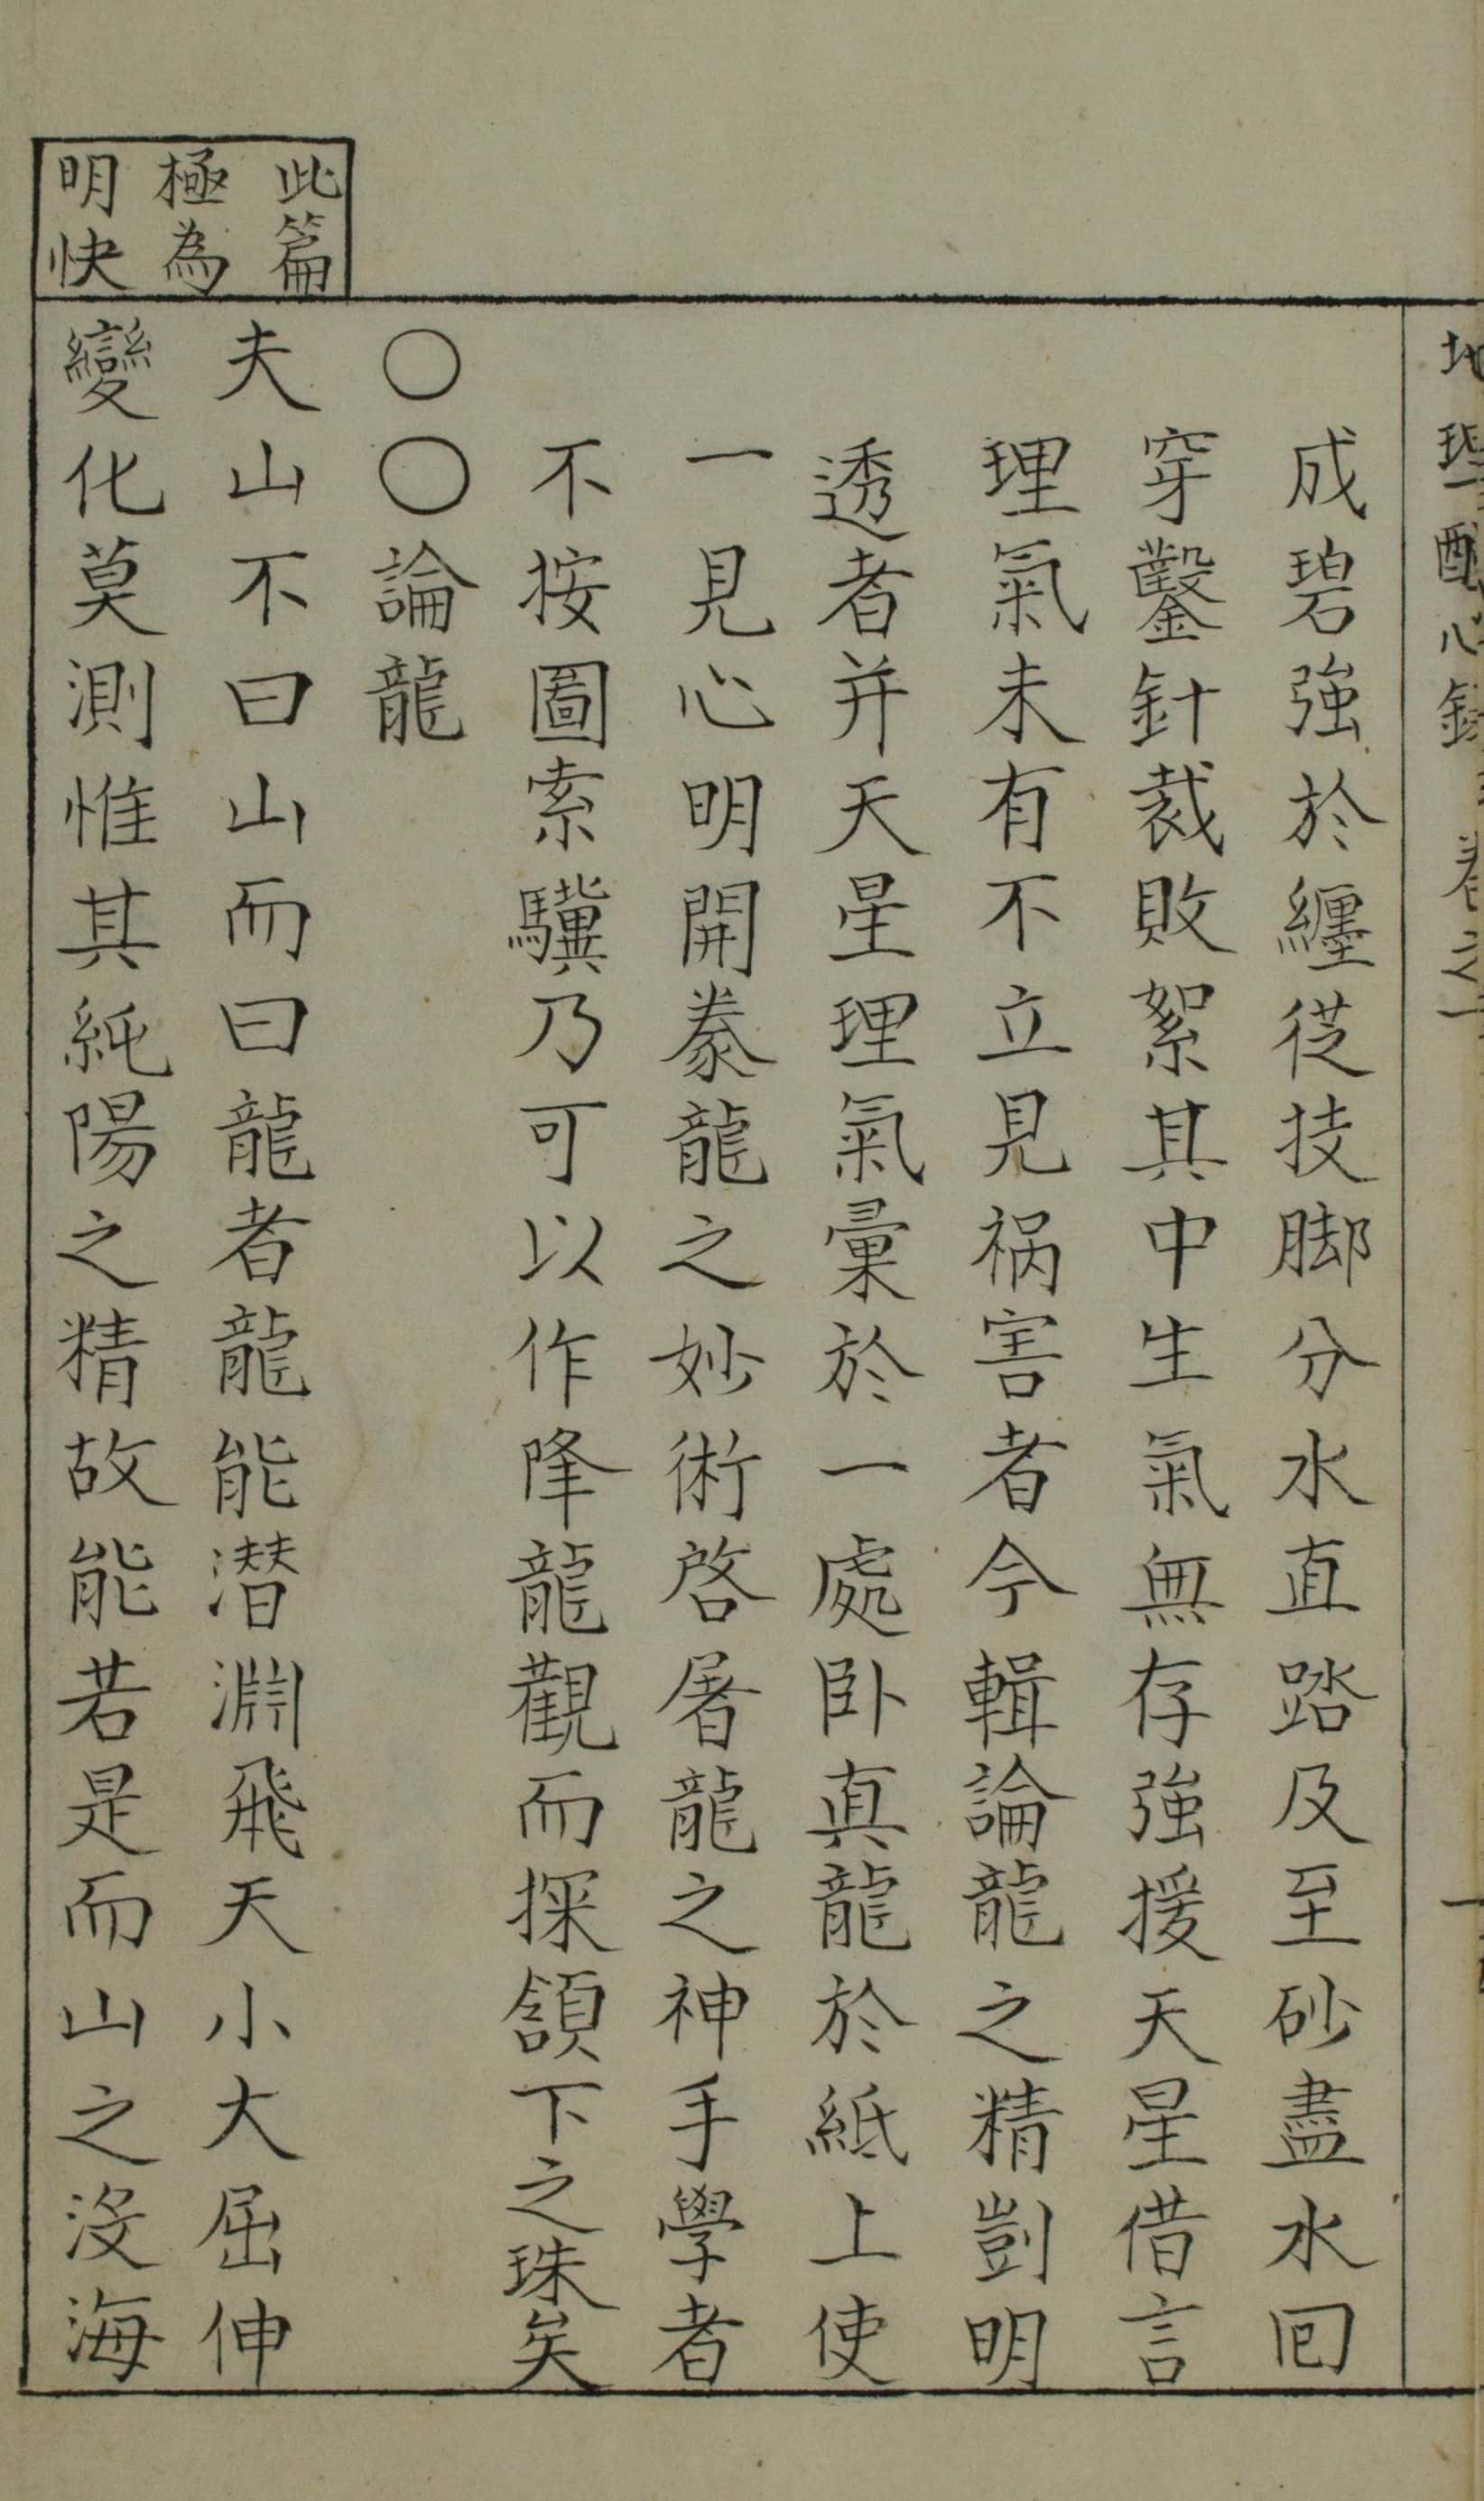 地理配心錄 卷之一
成碧強於纏從技脚分水直踏及至砂盡水回
穿鑿針裁敗絮其中生氣無存強援天星借言
理氣未有不立見禍害者今輯論龍之精剴明
透者并天星理氣彙於一處卧真龍於紙上使
一見心明開豢龍之妙術啓屠龍之神手學者
不按圖索驥乃可以作降龍觀而探頷下之珠矣
〇〇論龍
此篇
極為
明快
夫山不曰山而曰龍者龍能潜淵飛天小大屈伸
變化莫測惟其純陽之精故能若是而山之沒海